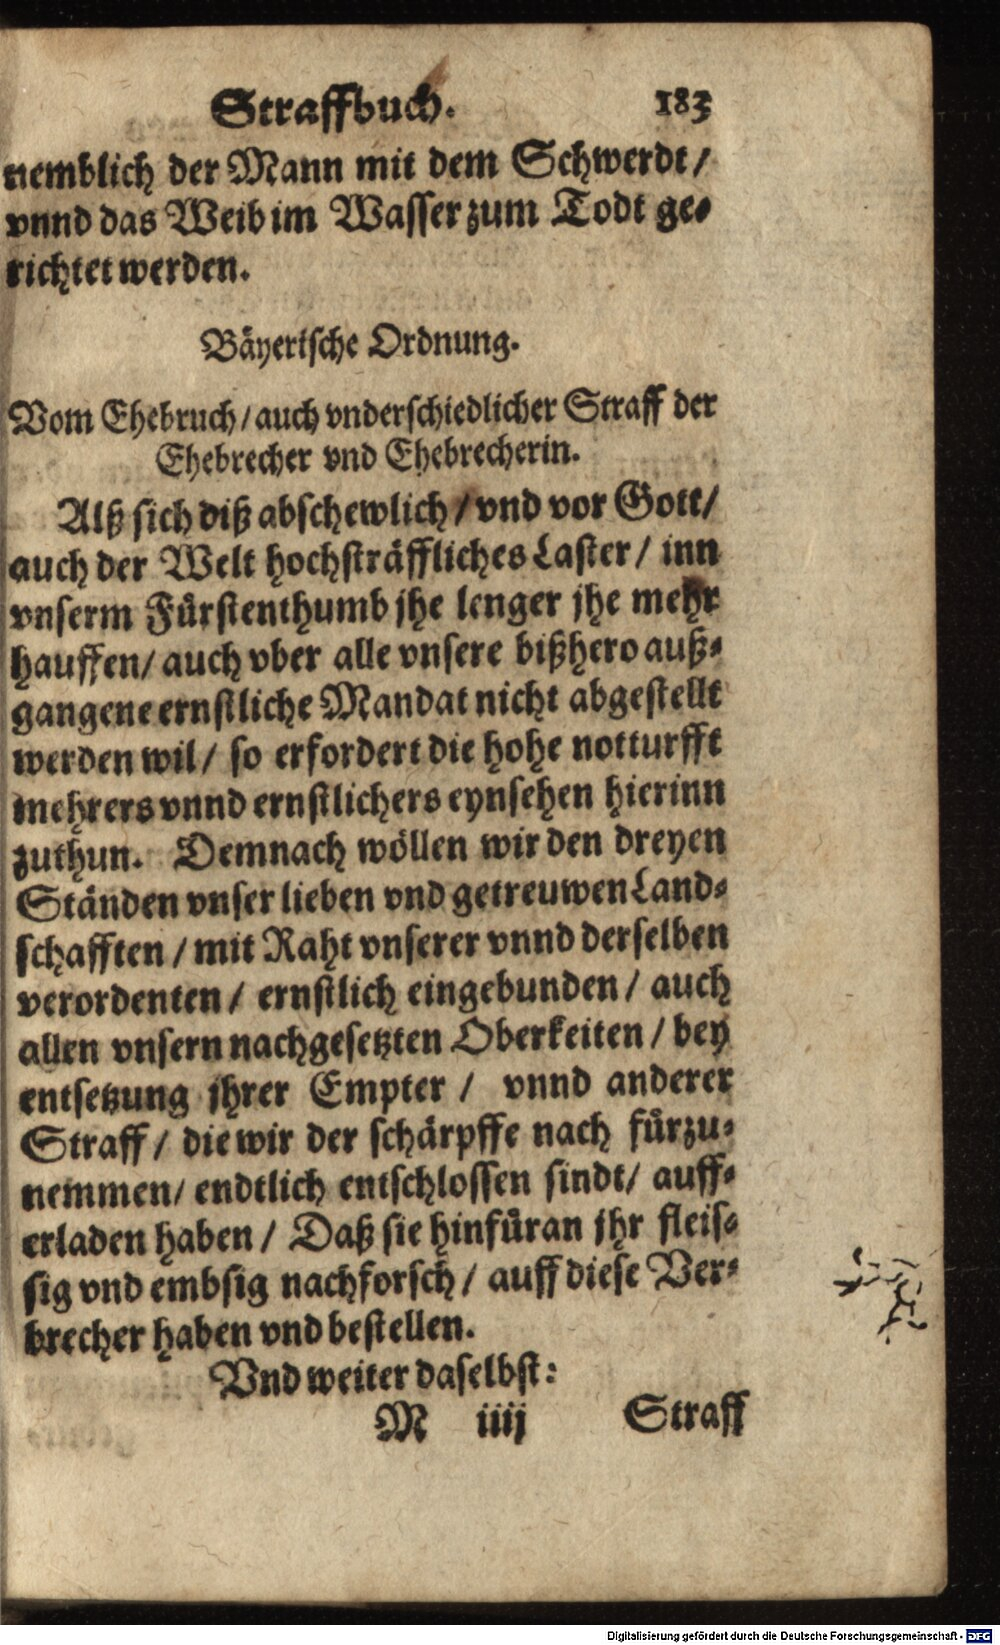 Straffbuch. 183
nemblich der Mann mit dem Schwerdt/
vnnd das Weib im Wasser zum Todt ge-
richtet werden.
Bäyerische Ordnung.
Vom Ehebruch/ auch vnderschiedlicher Straff der
Ehebrecher vnd Ehebrecherin.
Alß sich diß abschewlich/ vnd vor Gott/
auch der Welt hochsträffliches Laster/ inn
vnserm Fürstenthumb jhe lenger jhe mehr
hauffen/ auch vber alle vnsere bißhero auß-
gangene ernstliche Mandat nicht abgestellt
werden wil/ so erfordert die hohe notturfft
mehrers vnnd ernstlichers eynsehen hierinn
zuthun. Demnach wöllen wir den dreyen
Ständen vnser lieben vnd getreuwen Land-
schafften/ mit Raht vnserer vnnd derselben
verordenten/ ernstlich eingebunden/ auch
allen vnsern nachgesetzten Oberkeiten/ bey
entsetzung jhrer Empter/ vnnd anderer
Straff/ die wir der schärpffe nach fürzu-
nemmen/ endtlich entschlossen sindt/ auff-
erladen haben/ Daß sie hinfüran jhr fleis-
sig vnd embsig nachforsch/ auff diese Ver-
brecher haben vnd bestellen.
Vnd weiter daselbst:
M iiij Straff
Digitalisierung gefördert durch die Deutsche Forschungsgemeinschaft - DFG